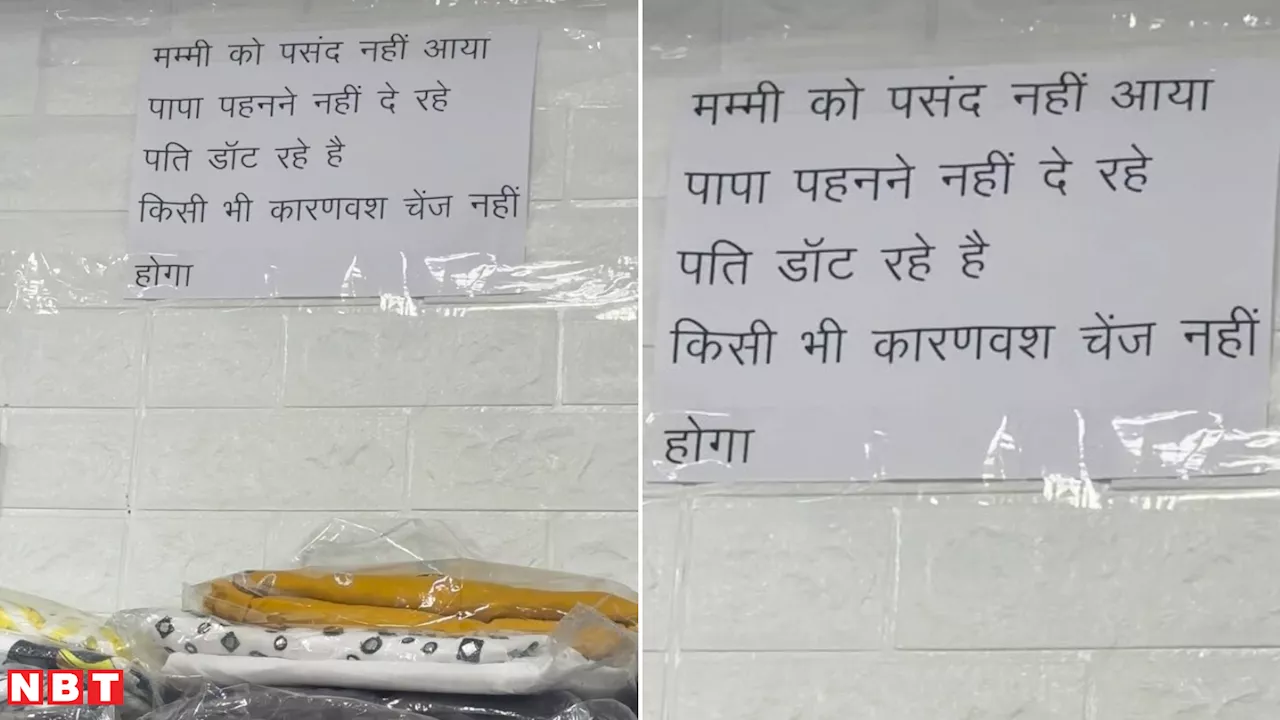 मम्मी को पसंद नहीं आया
पापा पहनने नहीं दे रहे
पति डॉट रहे है
किसी भी कारणवश चेंज नहीं
होगा
मम्मी को पसंद नहीं आया
पापा पहनने नहीं दे रहे
पति डॉट रहे है
किसी भी कारणवश चेंज नहीं
होगा
NBT